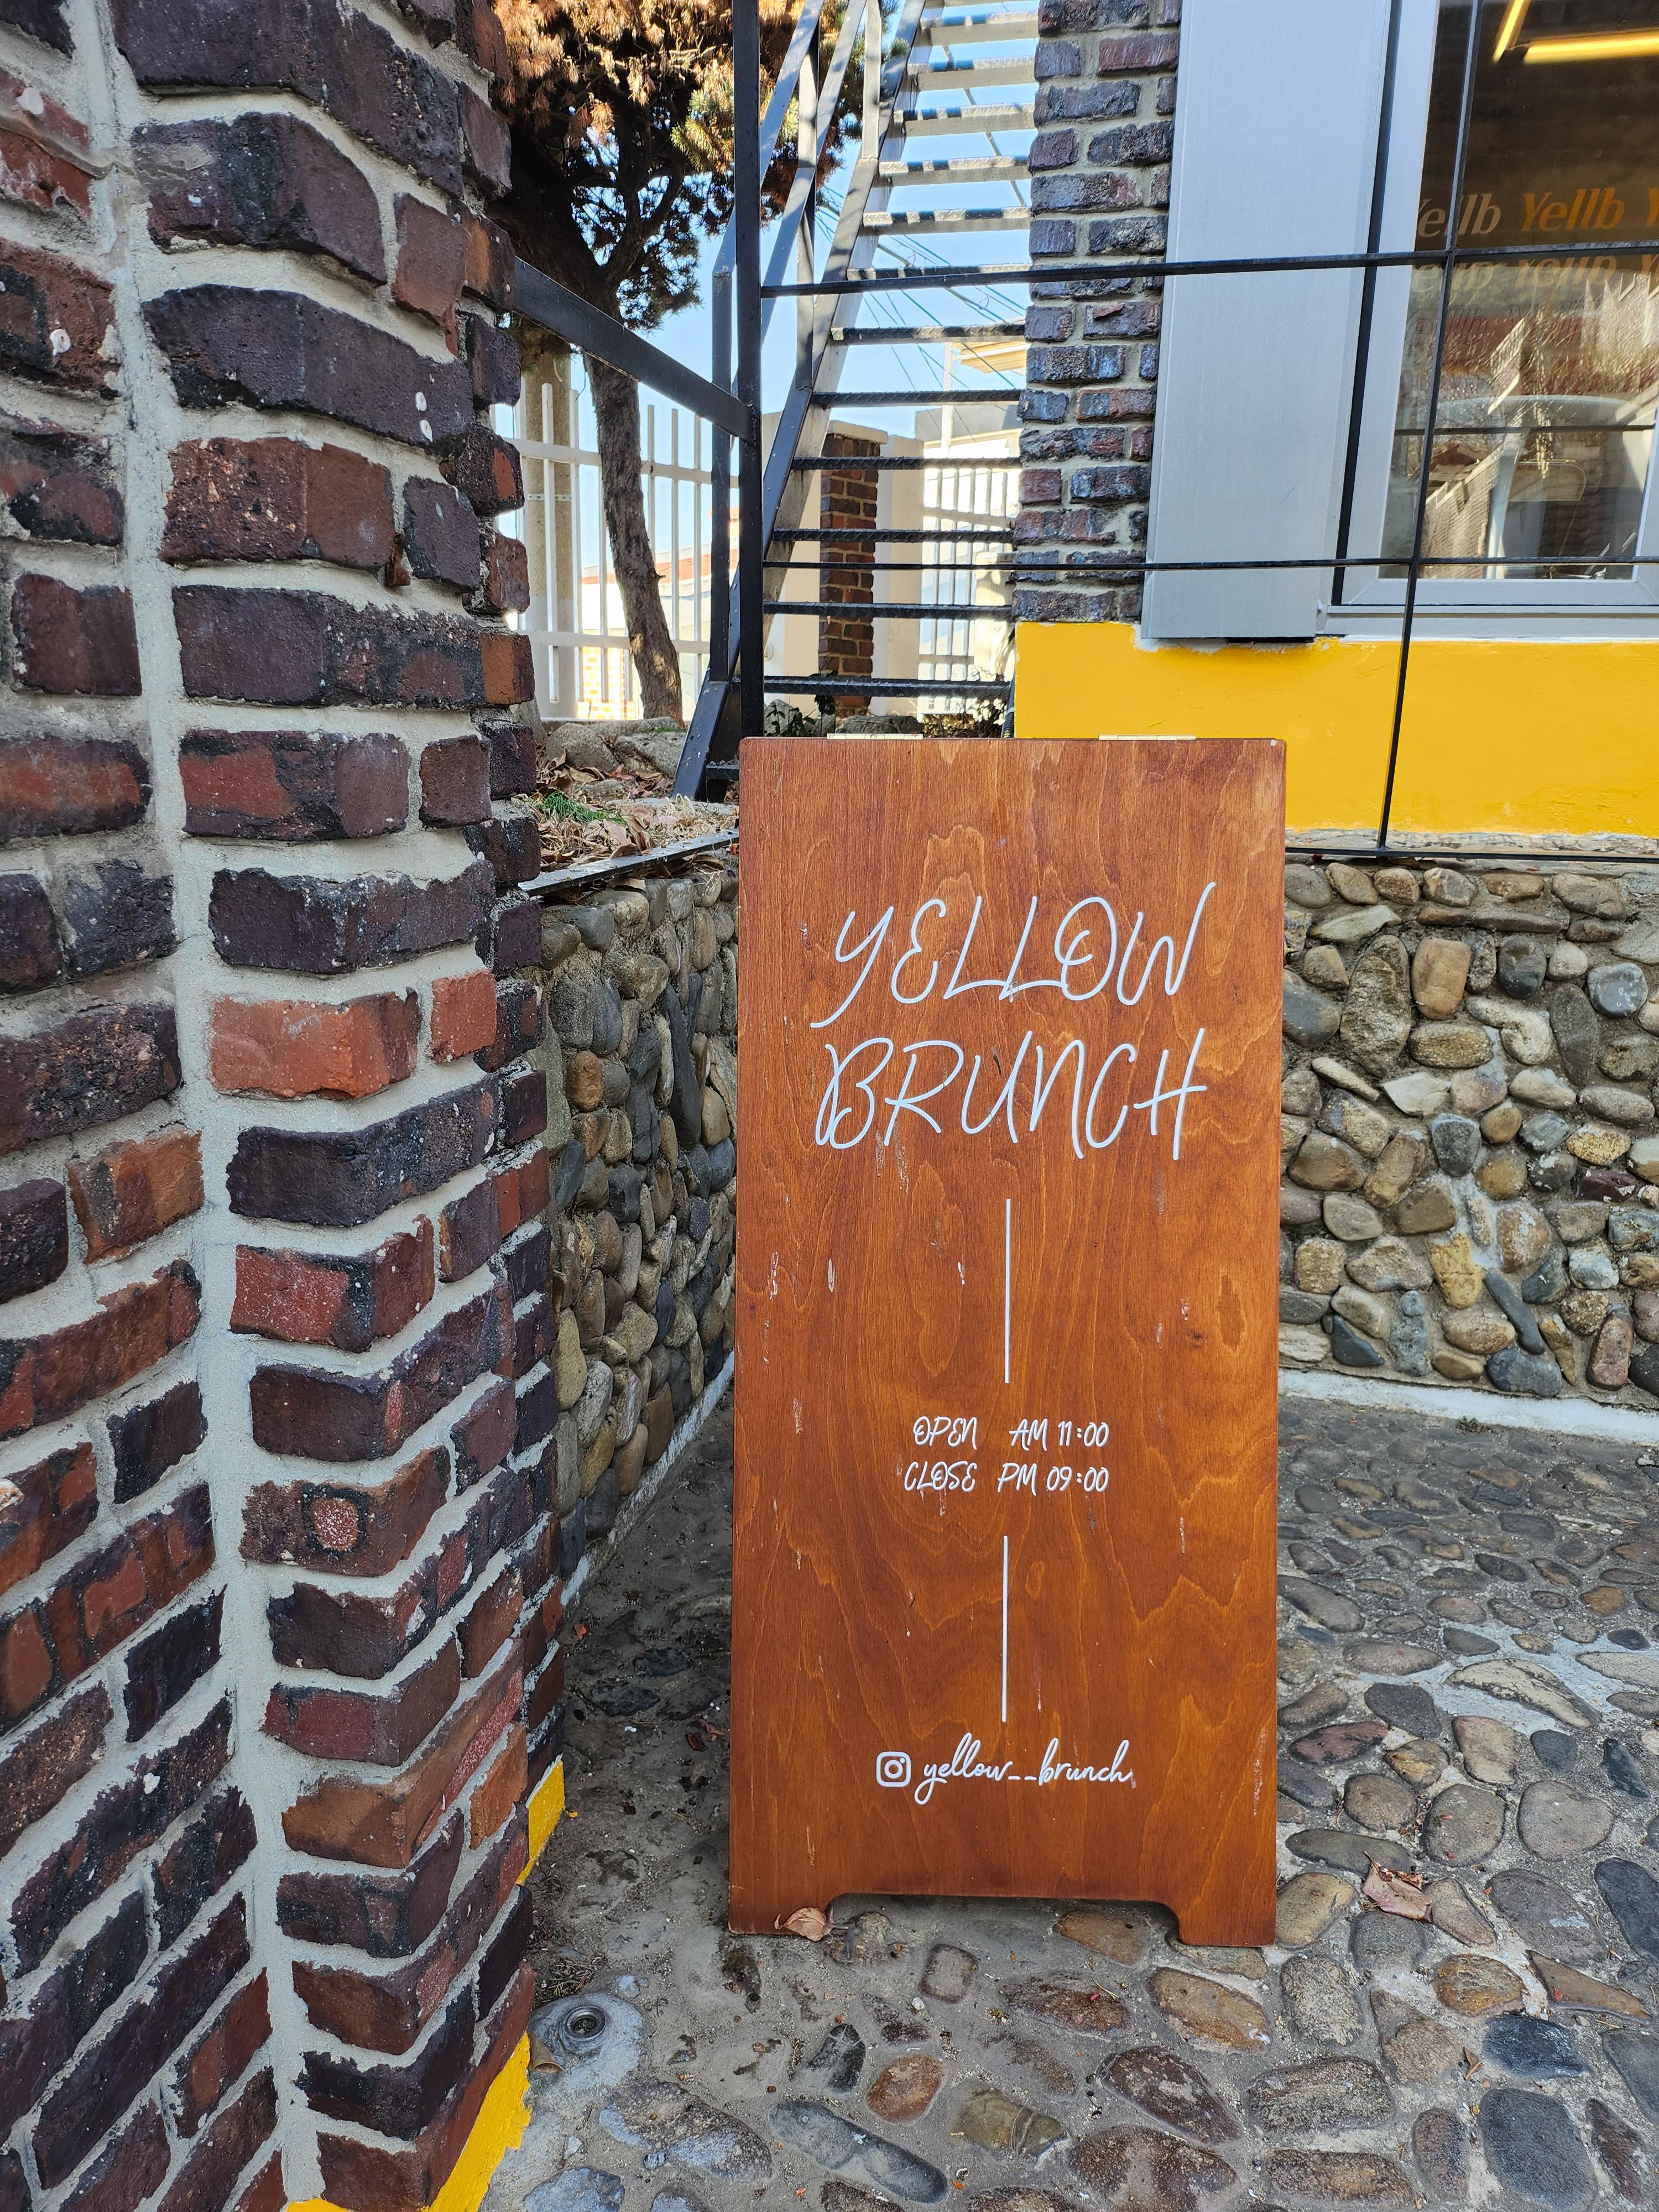 Yellb Yellb
YELLOW
BRUNCH
OPEN AM 11:00
CLOSE PM 09:00
yellow__brunch